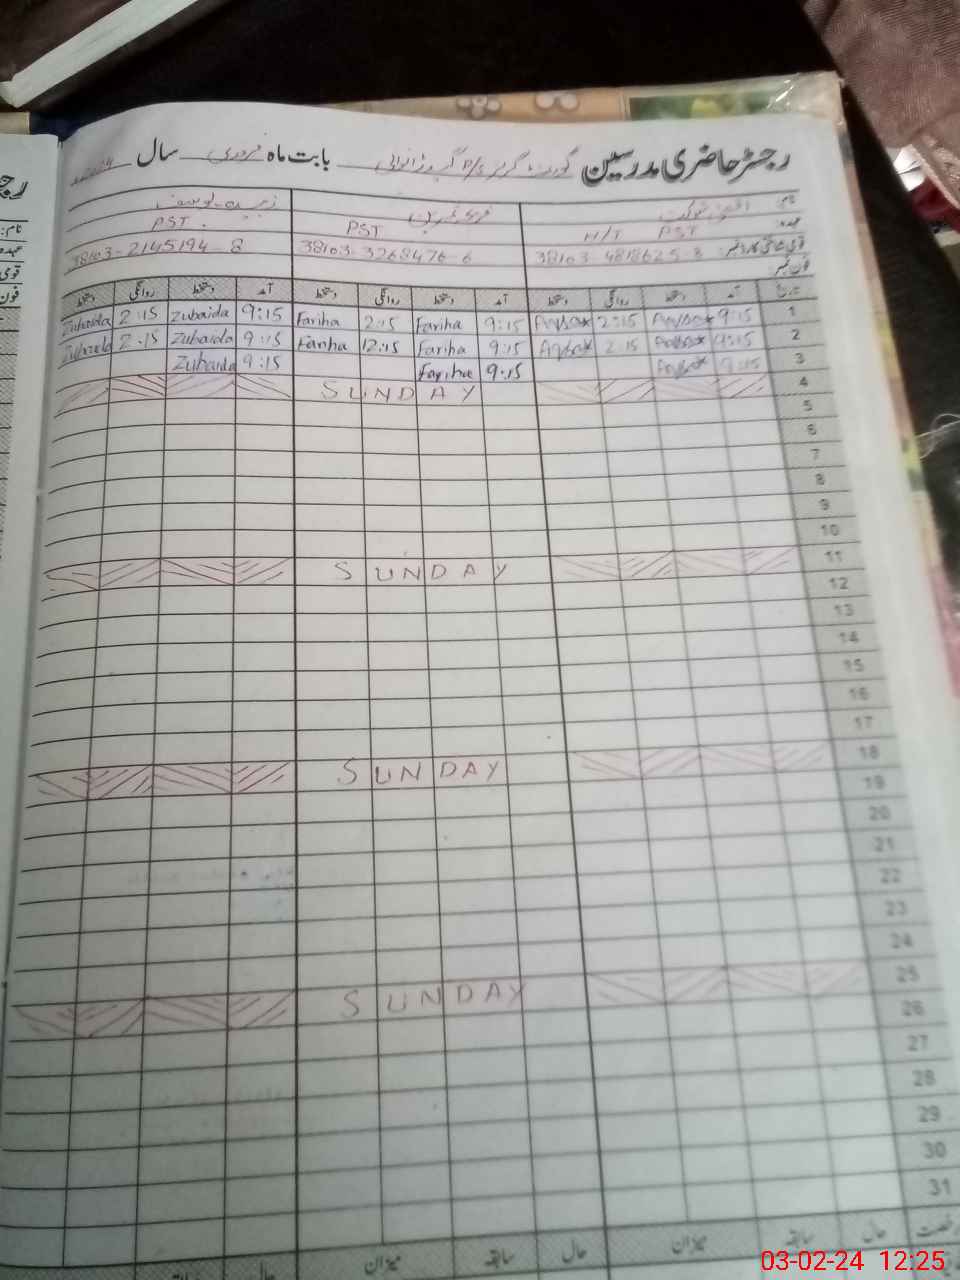 رجسٹر حاضری مدرسین گورنمنٹ گرلز P/S بابت ماہ فروری سال
نام:
عہدہ: H/T PST PST PST
قومی شناختی کارڈ نمبر: 38103-4818625-8 38103-3268476-6 38103-2145194-8
فون نمبر:
تاریخ آمد دستخط روانگی دستخط آمد دستخط روانگی دستخط آمد دستخط روانگی دستخط
Zubaida 2:15 Zubaida 9:15 Fariha 2:15 Fariha 9:15 Aqsa 2:15 Aqsa 9:15 1
Zubaida 2:15 Zubaida 9:15 Fariha 12:15 Fariha 9:15 Aqsa 2:15 Aqsa 9:15 2
Zubaida 9:15 Fariha 9:15 Aqsa 9:15 3
SUNDAY 4
5
6
7
8
9
10
SUNDAY 11
12
13
14
15
16
17
SUNDAY 18
19
20
21
22
23
24
SUNDAY 25
26
27
28
29
30
31
رخصت حال سابقہ میزان حال سابقہ میزان حال
03-02-24 12:25